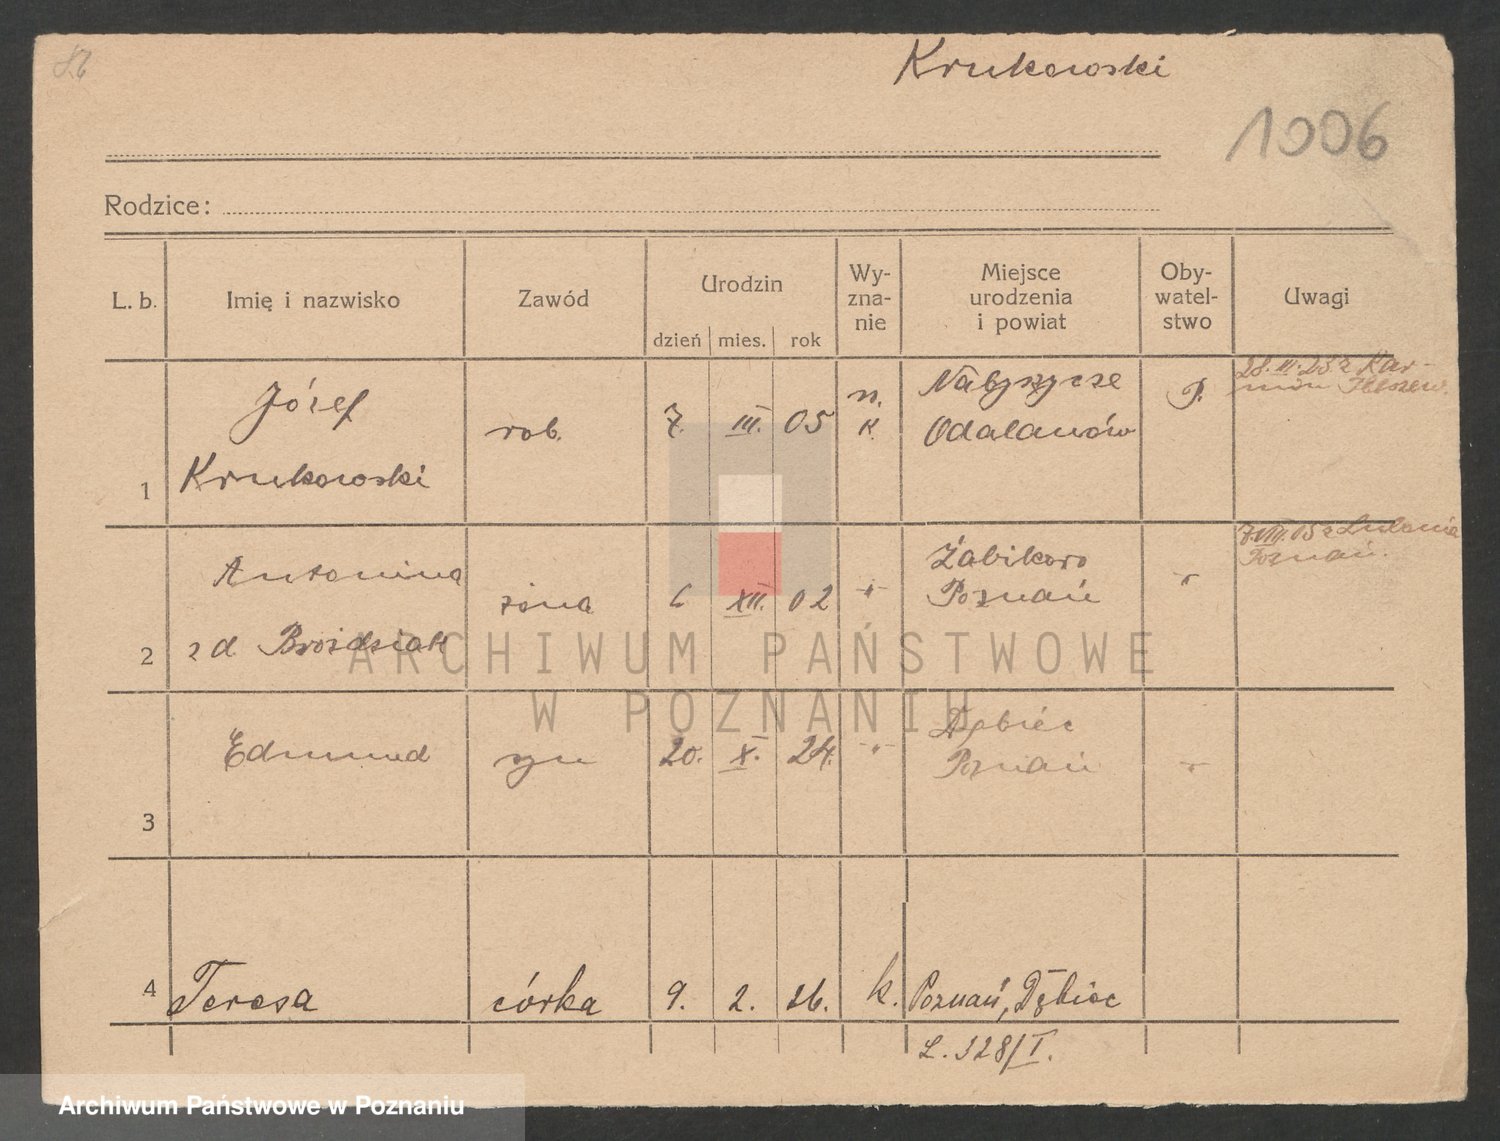 Krukowski
1006
Rodzice:
L. b.
Imię i nazwisko
Zawód
Urodzin
dzień mies. rok
Wy-
zna-
nie
Miejsce
urodzenia
i powiat
Oby-
watel-
stwo
Uwagi
1
Józef
Krukowski
rob.
7. III. 05
r.
k.
Nabyszyce
Odalanów
P.
2
Antonina
zd Broździak
żona
6 XII. 02
-"-
Żabikowo
Poznań
-"-
7.VIII.05 z Lubonia
Poznań.
3
Edmund
syn
20. X. 24.
-"-
Dębiec
Poznań
-"-
4
Teresa
córka
9. 2. 26.
k.
Poznań, Dębiec
L. 328/I.
ARCHIWUM PAŃSTWOWE
W POZNANIU
Archiwum Państwowe w Poznaniu